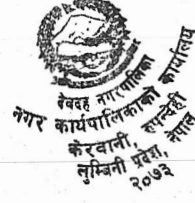 देवदह नगरपालिका
नगर कार्यपालिकाको कार्यालय
केरवानी, रुपन्देही
लुम्बिनी प्रदेश, नेपाल
२०७३